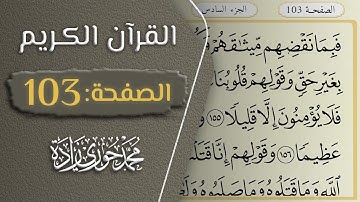 القرآن الكريم
الصفحة: 103
محمد حوري زادة
الجزء السادس
الصفحة 103
فَبِمَا نَقْضِهِم مِّيثَٰقَهُمْ
بِغَيْرِ حَقٍّ وَقَوْلِهِمْ قُلُوبُنَا
فَلَا يُؤْمِنُونَ إِلَّا قَلِيلًا ١٥٥
عَظِيمًا ١٥٦ وَقَوْلِهِمْ إِنَّا قَتَلْ
ٱللَّهِ وَمَا قَتَلُوهُ وَمَا صَلَبُوهُ